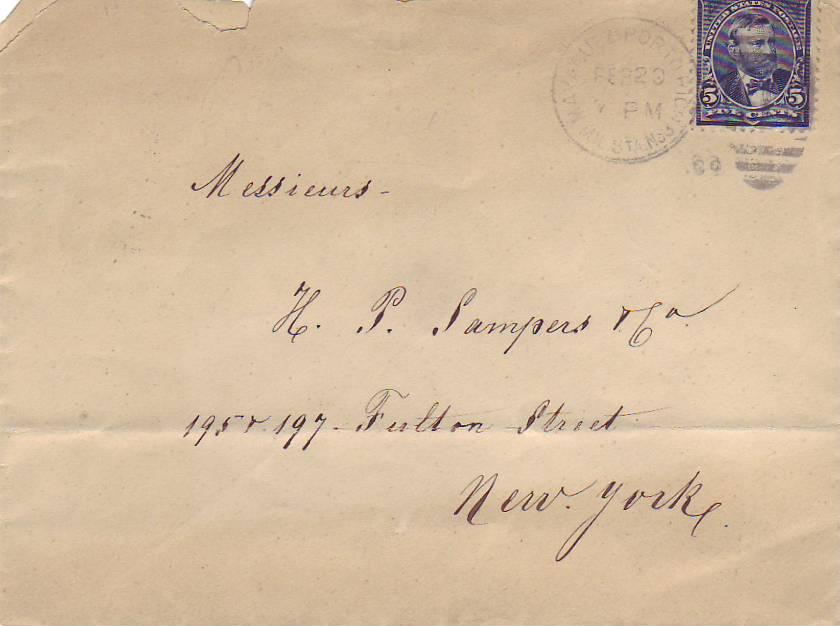 MAYAGUEZ PORTO RICO
FEB 20
PM
MIL. STA. No 3
99
UNITED STATES POSTAGE
5 5
FIVE CENTS
Messieurs-
H. P. Sampers & Co.
195 & 197- Fulton Street
New. York.